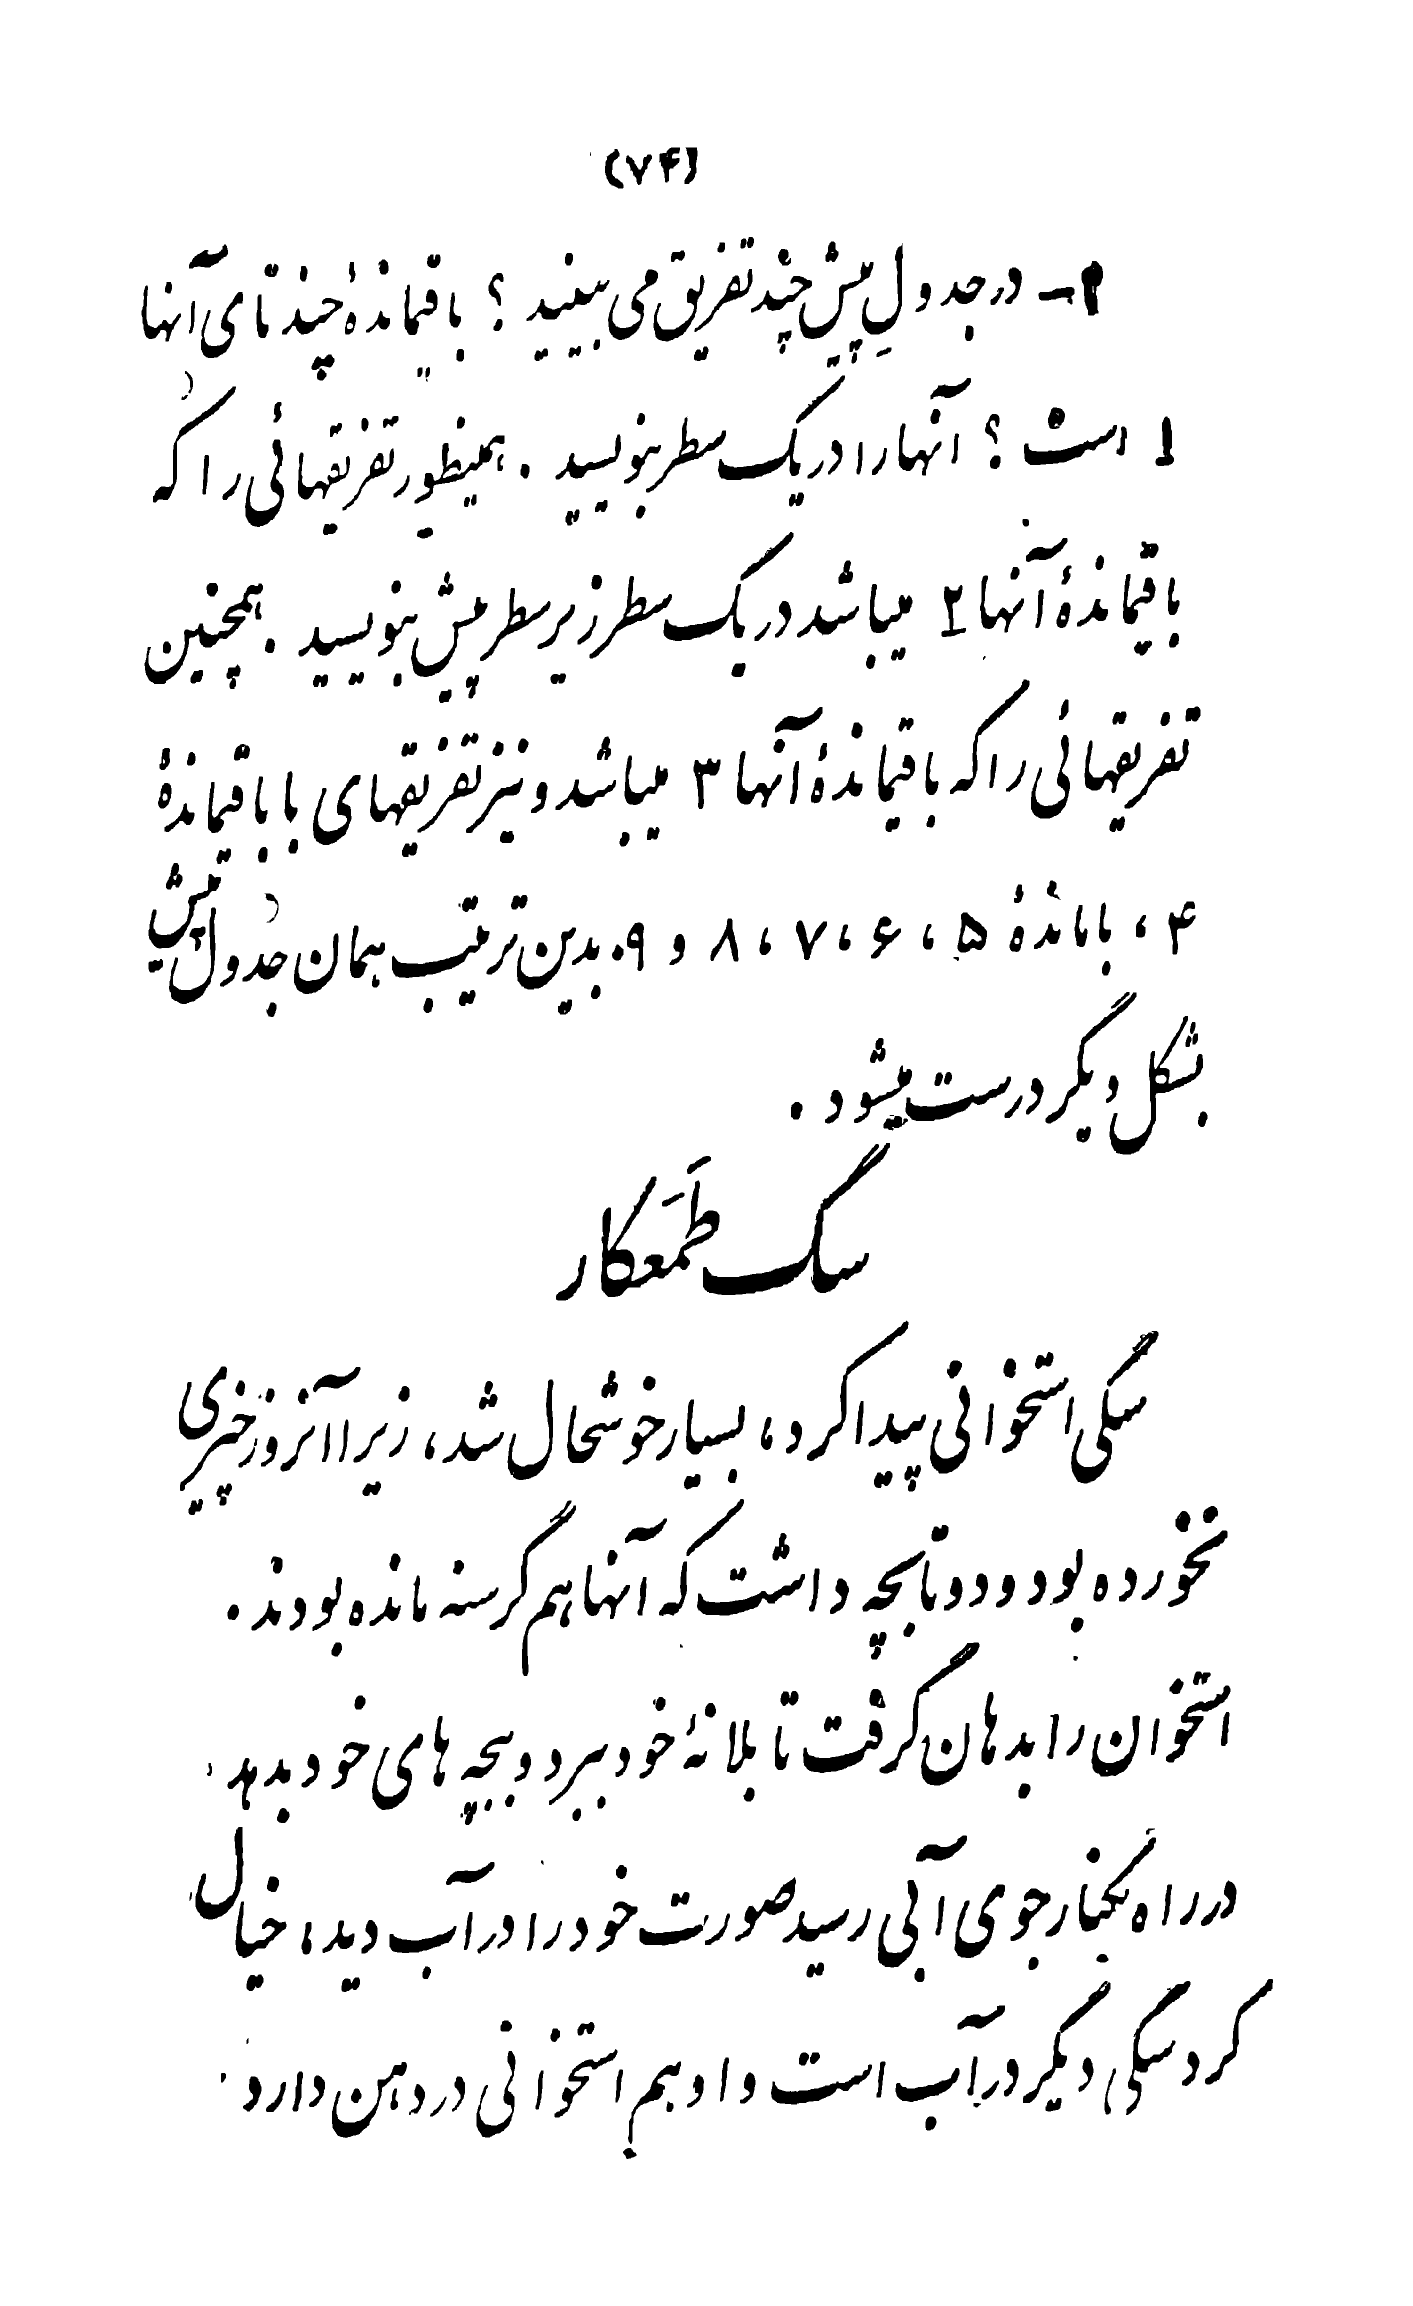 (۷۴)
۹ـ در جدولِ پیش چند تفریق می بینید ؟ باقیماندهٔ چند تای آنها
۱ است ؟ آنها را در یک سطر بنویسید . همینطور تفریقهائی را که
باقیماندهٔ آنها ۲ میباشد در یک سطر زیر سطر پیش بنویسید . همچنین
تفریقهائی را که باقیماندهٔ آنها ۳ میباشد و نیز تفریقهای با باقیماندهٔ
۴ ، با ماندهٔ ۵ ، ۶ ، ۷ ، ۸ و ۹. بدین ترتیب همان جدول پیش
بشکل دیگر درست میشود .
سگ طَمَعکار
سگی استخوانی پیدا کرد ، بسیار خوشحال شد ، زیرا آنروز چیزی
نخورده بود و دو تا بچه داشت که آنها هم گرسنه مانده بودند .
استخوان را بدهان گرفت تا بلانهٔ خود ببرد و ببچه های خود بدهد .
در راه بکنار جوی آبی رسید صورت خود را در آب دید ، خیال
کرد سگی دیگر در آب است و او هم استخوانی در دهن دارد .